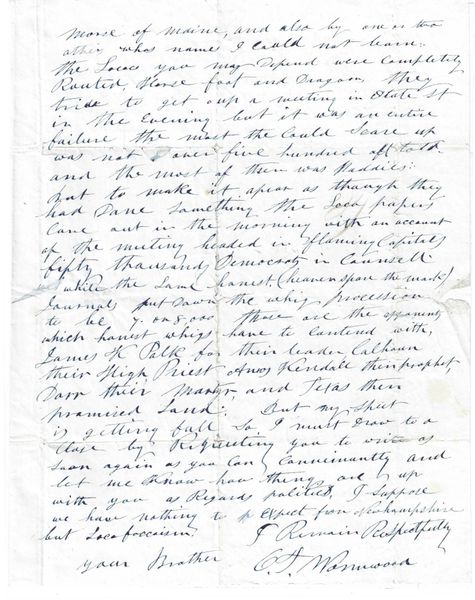 Morse of Maine, and also by one or two
others whos name I could not learn.
the Locos you may Depend were completely
Routed, Horse foot and Dragoon, they
tride to get oup a meeting in State St
in the Evening but it was an entire
failure the most the Could Scare up
was not over five hundred all told.
and the most of them was Paddies.
But to make it apear as though they
had Dane Something the Loco papers
Came out in the morning with an account
of the meeting headed in flaming Capitals
fifty thousand Democrats in Counsell
while the Same honest (heaven spare the mark)
Journals put Down the whig procession
to be 7 or 8,000 those are the opponents
which honest whigs have to contend with,
James K Polk for their leader Calhoun
their High Priest Amos Kendall their prophet,
Dorr their Martyr, and Texas their
promised Land. But my Sheet
is getting full So I must Draw to a
Close by Requesting you to write as
Soon again as you Can Conveniantly and
let me Know how things are up
with you as Regards politics, I Suppose
we have nothing to Expect from Newhampshire
but Locofocoism.
I Remain Respectfully
your Brother C. T. Wormwood